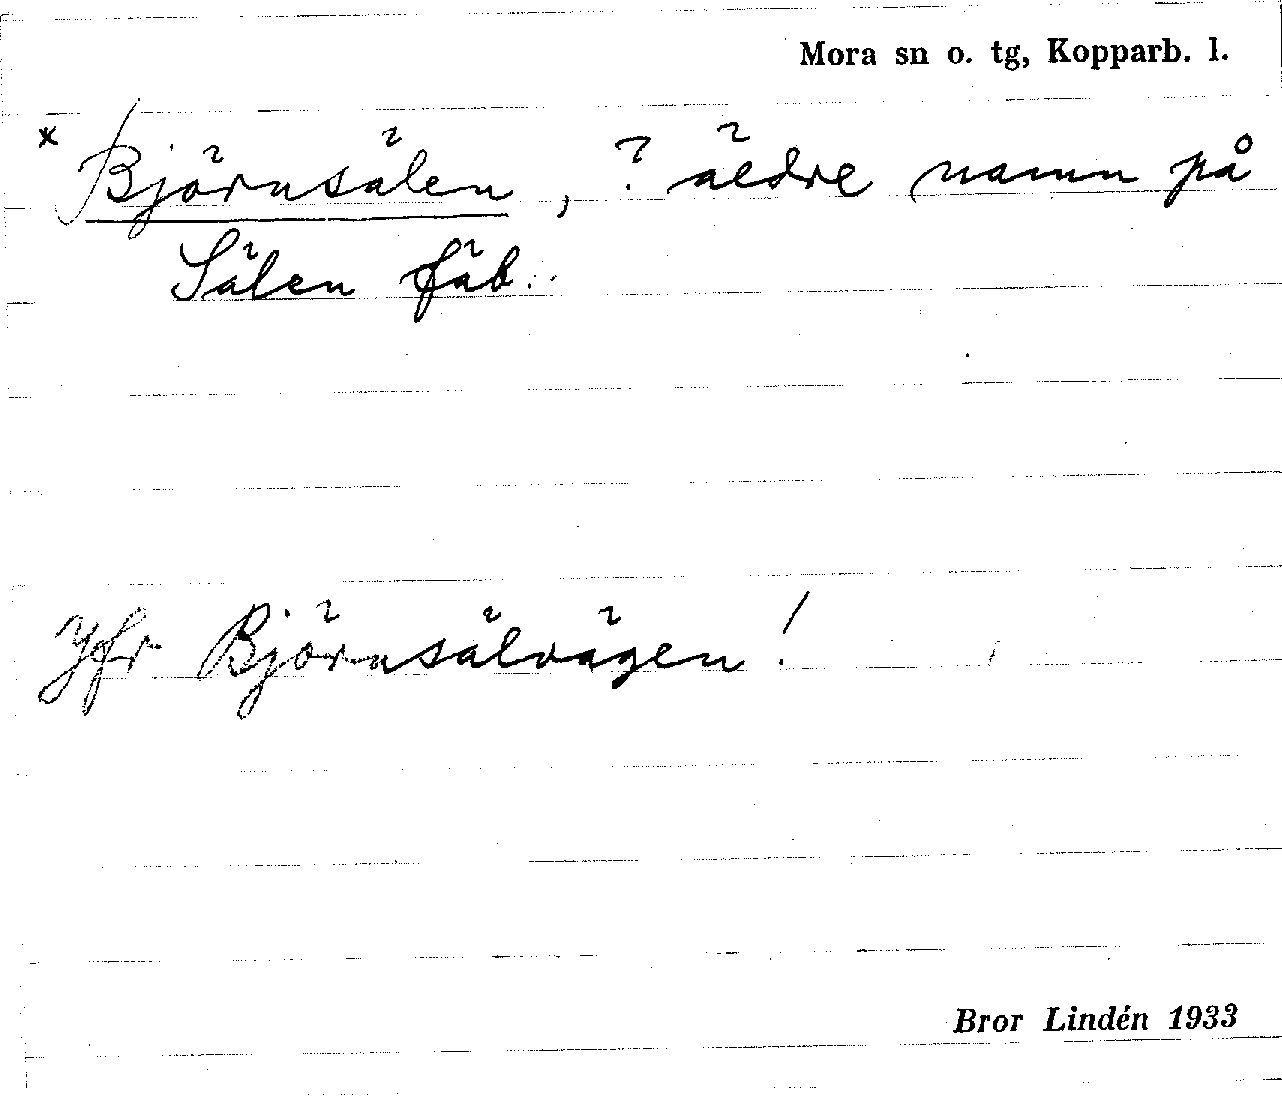 Mora sn o. tg, Kopparb. l.
* Björnsälen, ? äldre namn på
Sälen fäb.
Jfr Björnsälvägen!
Bror Lindén 1933